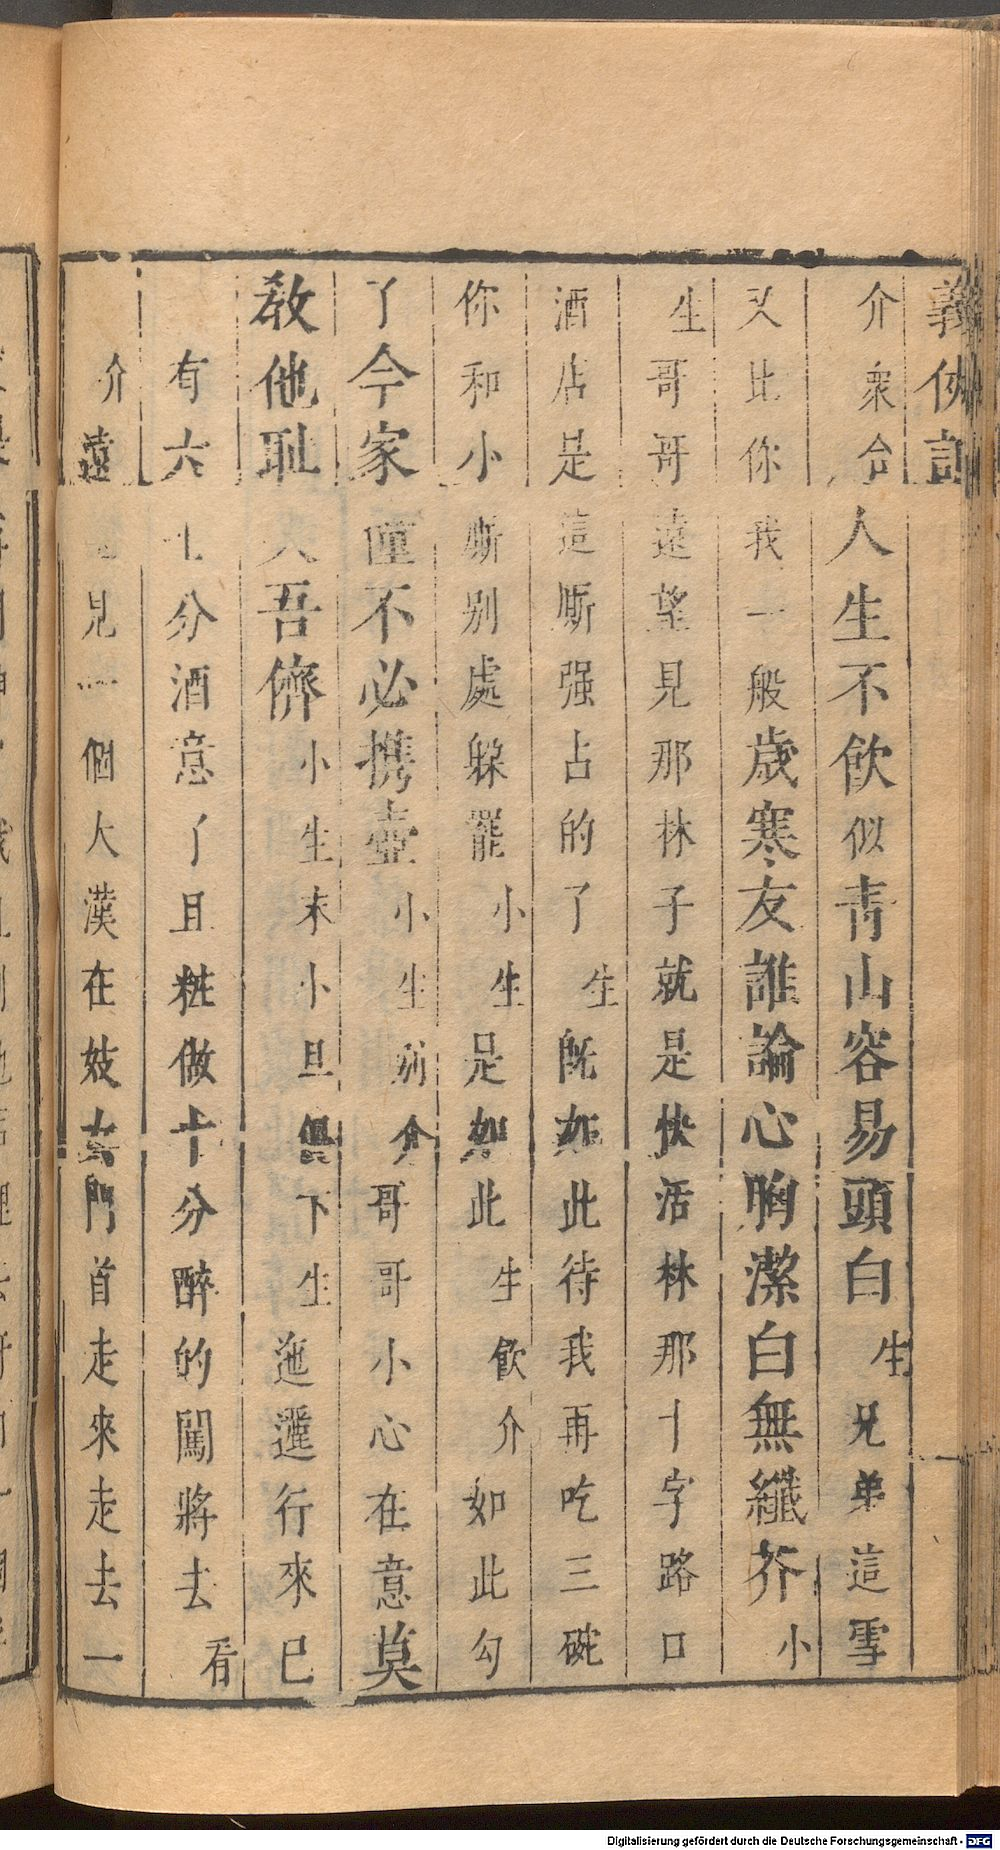 義俠記
介衆合人生不飲似青山容易頭白生兄弟這雪
又比你我一般歲寒友誰論心胸潔白無纖芥小
生哥哥遠望見那林子就是快活林那十字路口
酒店是這厮强占的了生旣如此待我再吃三碗
你和小厮别處躲罷小生是如此生飲介如此勾
了今家童不必携壺小生别介哥哥小心在意莫
教他耻吾儕小生末小旦俱下生迤邐行來已
有六七分酒意了且粧做十分醉的闖將去看
介遠見一個大漢在妓女門首走來走去一
Digitalisierung gefördert durch die Deutsche Forschungsgemeinschaft - DFG